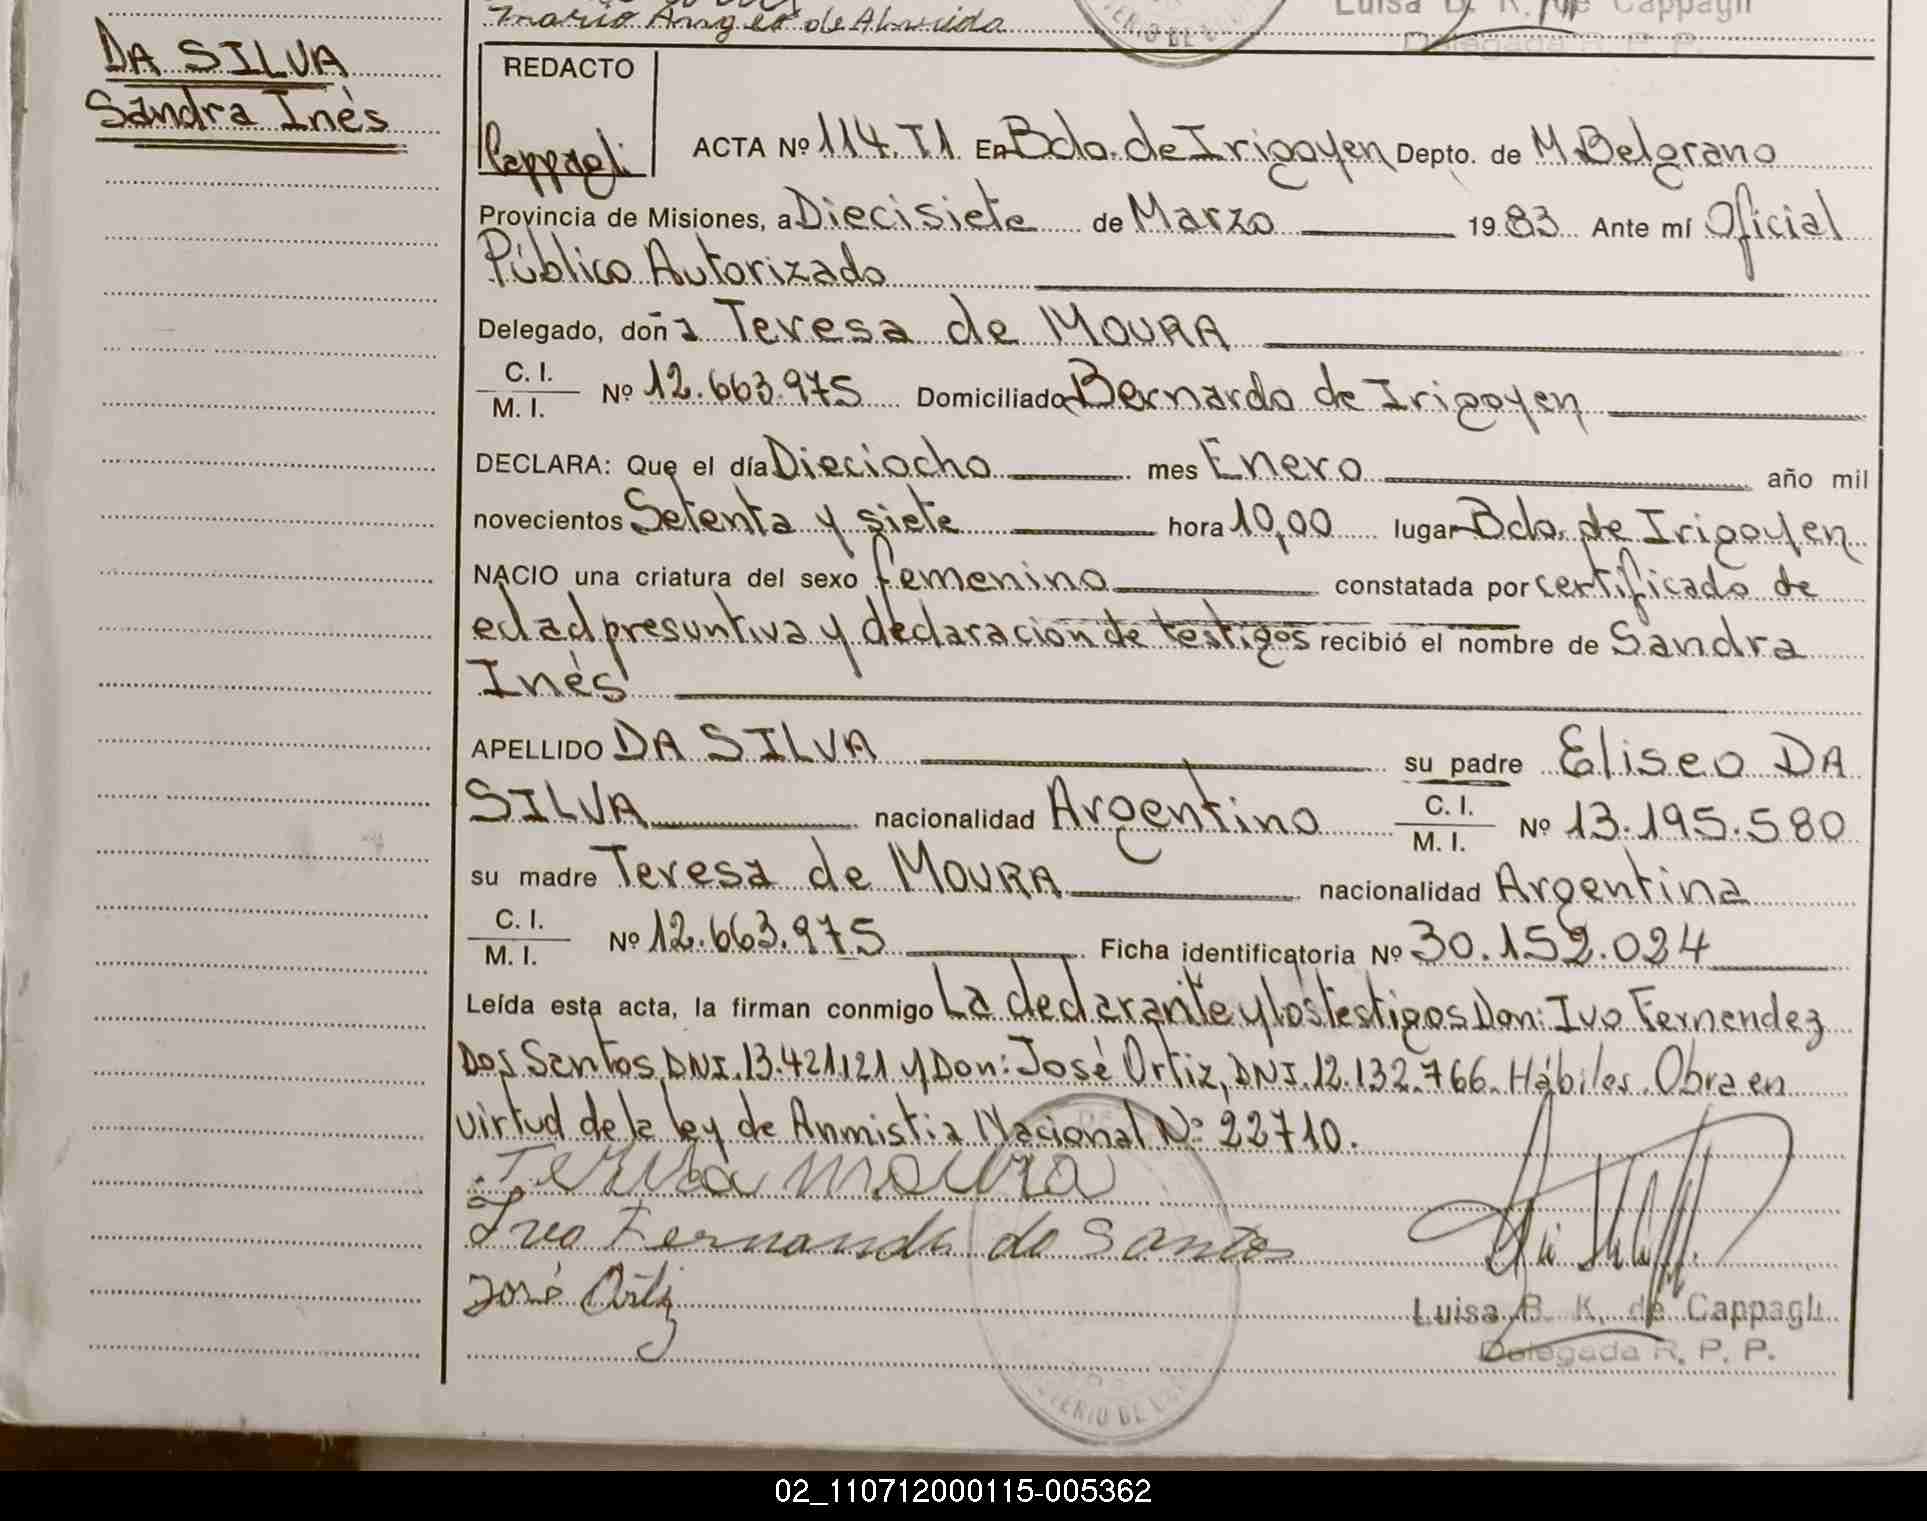 Mario Anges de Almeida
Luisa B. K. de Cappagli
Delegada R. P. P.
DA SILVA
Sandra Inés
REDACTO
Cappagli
ACTA Nº 114. T1 En Bdo. de Irigoyen Depto. de M. Belgrano
Provincia de Misiones, a Diecisiete de Marzo 1983 Ante mí Oficial
Público Autorizado
Delegado, doña Teresa de MOURA
C. I.
M. I. Nº 12.663.975 Domiciliado Bernardo de Irigoyen
DECLARA: Que el día Dieciocho mes Enero año mil
novecientos Setenta y siete hora 10,00 lugar Bdo. de Irigoyen
NACIO una criatura del sexo femenino constatada por certificado de
edad presuntiva y declaración de testigos recibió el nombre de Sandra
Inés
APELLIDO DA SILVA su padre Eliseo DA
SILVA nacionalidad Argentino C. I.
M. I. Nº 13.195.580
su madre Teresa de MOURA nacionalidad Argentina
C. I.
M. I. Nº 12.663.975 Ficha identificatoria Nº 30.152.024
Leída esta acta, la firman conmigo La declarante y los testigos Don: Ivo Fernendez
Dos Santos, DNI. 13.421.121 y Don: José Ortiz, DNI. 12.132.766. Hábiles. Obra en
virtud de la ley de Anmistia Nacional Nº 22710.
Tereza moura
Ivo Fernande do Santos
José Ortiz
Luisa B. K. de Cappagli
Delegada R. P. P.
02_110712000115-005362